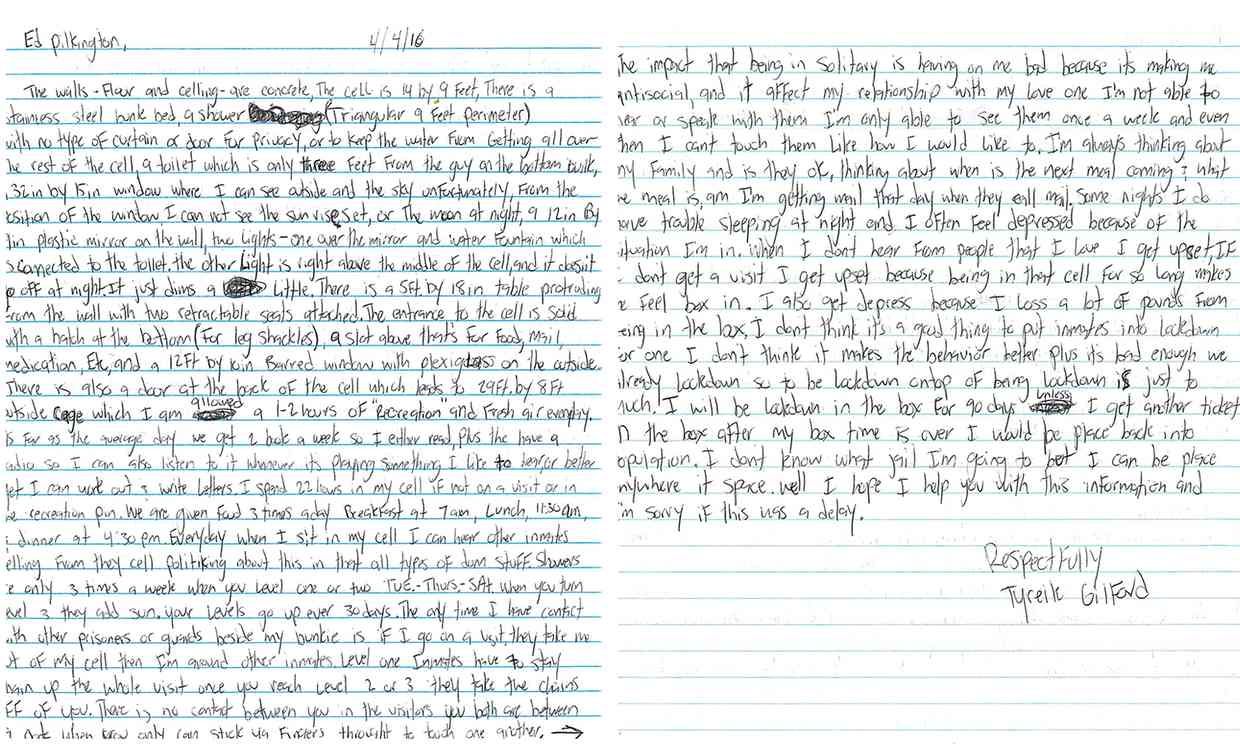 Ed Pilkington, 4/4/16
The walls - Floor and celling - are concrete, The cell is 14 by 9 Feet, There is a
stainless steel bunk bed, a shower (Triangular 9 Feet perimeter)
with no type of curtain or door For privacy, or to keep the water From Getting all over
he rest of the cell, a toilet which is only three Feet From the guy on the bottom bunk,
32in by 15in window where I can see outside and the sky unfortunately, From the
osition of the window I can not see the sun rise, set, or The moon at night, a 12in By
in plastic mirror on the wall, two Lights - one over the mirror and water Fountain which
s connected to the toilet. the other Light is right above the middle of the cell, and it doesn't
go off at night. It just dims a little. There is a 5Ft by 18in table protruding
From the wall with two retractable seats attached. The entrance to the cell is solid
with a hatch at the bottom (For leg shackles), a slot above that's For Food, Mail,
medication, Etc, and a 12Ft by 10in Barred window with plexiglass on the outside.
There is also a door at the back of the cell which leads to 29Ft. by 8Ft
utside cage which I am allowed a 1-2 hours of "Recreation" and Fresh air everyday.
As For as the average day we get 2 book a week so I either read, Plus the have a
adio so I can also listen to it whenever its playing something I like to hear, or better
yet I can work out & write Letters. I spend 22 hours in my cell if not on a visit or in
he recreation pin. We are given Food 3 times a day Breakfast at 7am, Lunch, 11:30am,
& dinner at 4:30 pm. Everyday when I sit in my cell I can hear other inmates
elling From they cell politiking about this in that all types of dum stuff. Showers
e only 3 times a week when you level one or two TUE.-Thurs.-SAt. When you turn
evel 3 they add sun. your Levels go up ever 30 days. The only time I have contact
ith other prisoners or guards beside my bunkie is if I go on a visit, they take me
ut of my cell then I'm around other inmates. Level one Inmates have to stay
hain up the whole visit once you reach Level 2 or 3 they take the chains
FF of you. There is no contact between you in the visitors you both are between
when you only can stick ya Fingers throught to touch one another. →
The impact that being in Solitary is having on me bad because its making me
antisocial, and it affect my relationship with my love one I'm not able to
her or speak with them I'm only able to see them once a week and even
then I cant touch them Like how I would like to. I'm always thinking about
my Family and is they ok, thinking about when is the next meal coming & what
he meal is, am I'm getting mail that day when they call mail. Some nights I do
have trouble sleeping at night and I often Feel depressed because of the
situation I'm in. When I don't hear From people that I love I get upset, IF
I dont get a visit I get upset because being in that cell For so long makes
e Feel box in. I also get depress because I loss a lot of pounds From
being in the box, I dont think it's a good thing to put inmates into lockdown
for one I don't think it makes the behavior better plus it's bad enough we
already lockdown so to be lockdown ontop of being lockdown is just to
much. I will be lockdown in the box For 90 days unless I get another ticket
in the box after my box time is over I would be place back into
opulation. I dont know what jail I'm going to but I can be place
anywhere it space. well I hope I help you with this information and
I'm sorry if this was a delay.
Respectfully
Tyreik Gilford